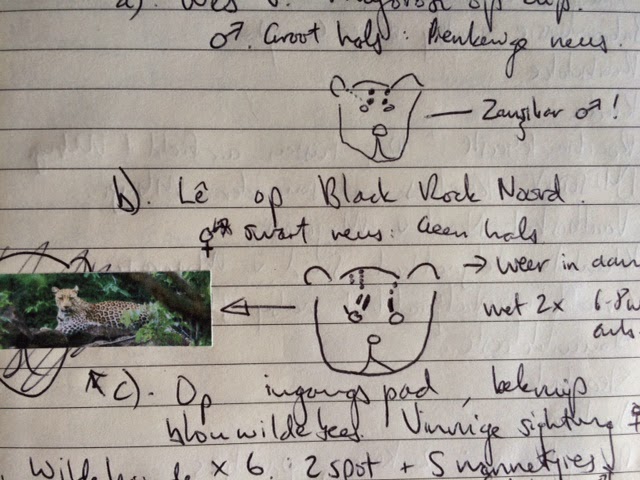 a). Wes v. op
♂. Groot hals : Pienkerige neus.
Zanzibar ♂!
b). Lê op Black Rock Noord.
♀ swart neus: Geen hals
→ weer in
met 2x 6-8w
c). Op ingangs pad,
blouwildebees. Vinnige sighting ♀
x 6. : 2 spot + 5 mannetjies